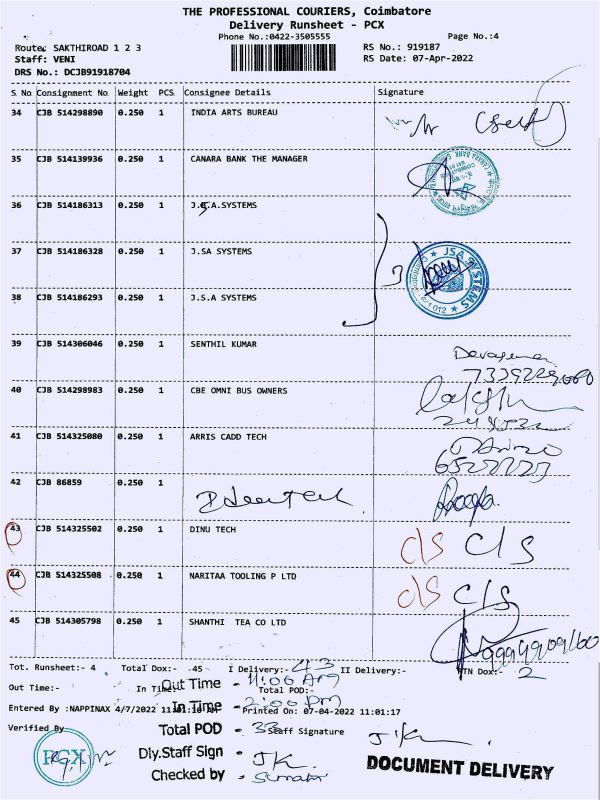 THE PROFESSIONAL COURIERS, Coimbatore
Delivery Runsheet - PCX
Phone No.:0422-3505555 Page No.:4
Route: SAKTHIROAD 1 2 3 RS No.: 919187
Staff: VENI RS Date: 07-Apr-2022
DRS No.: DCJB91918704
S. No Consignment No. Weight PCS. Consignee Details Signature
34 CJB 514298890 0.250 1 INDIA ARTS BUREAU
35 CJB 514139936 0.250 1 CANARA BANK THE MANAGER
CANARA BANK
36 CJB 514186313 0.250 1 J.S.A.SYSTEMS
37 CJB 514186328 0.250 1 J.SA SYSTEMS
3
JSA SYSTEMS
38 CJB 514186293 0.250 1 J.S.A SYSTEMS
39 CJB 514306046 0.250 1 SENTHIL KUMAR
40 CJB 514298983 0.250 1 CBE OMNI BUS OWNERS
41 CJB 514325080 0.250 1 ARRIS CADD TECH
42 CJB 86859 0.250 1
43 CJB 514325502 0.250 1 DINU TECH C/S C/S
44 CJB 514325508 0.250 1 NARITAA TOOLING P LTD C/S C/S
45 CJB 514305798 0.250 1 SHANTHI TEA CO LTD
Tot. Runsheet:- 4 Total Dox:- 45 I Delivery:- 43 II Delivery:- RTN Dox:- 2
Out Time:- In Time:- Out Time - 11:06 Am Total POD:-
Entered By :NAPPINAX 4/7/2022 In Time - 2:00 pm Printed On: 07-04-2022 11:01:17
Verified By Total POD - Staff Signature
PCX Dly.Staff Sign - JK
Checked by - DOCUMENT DELIVERY